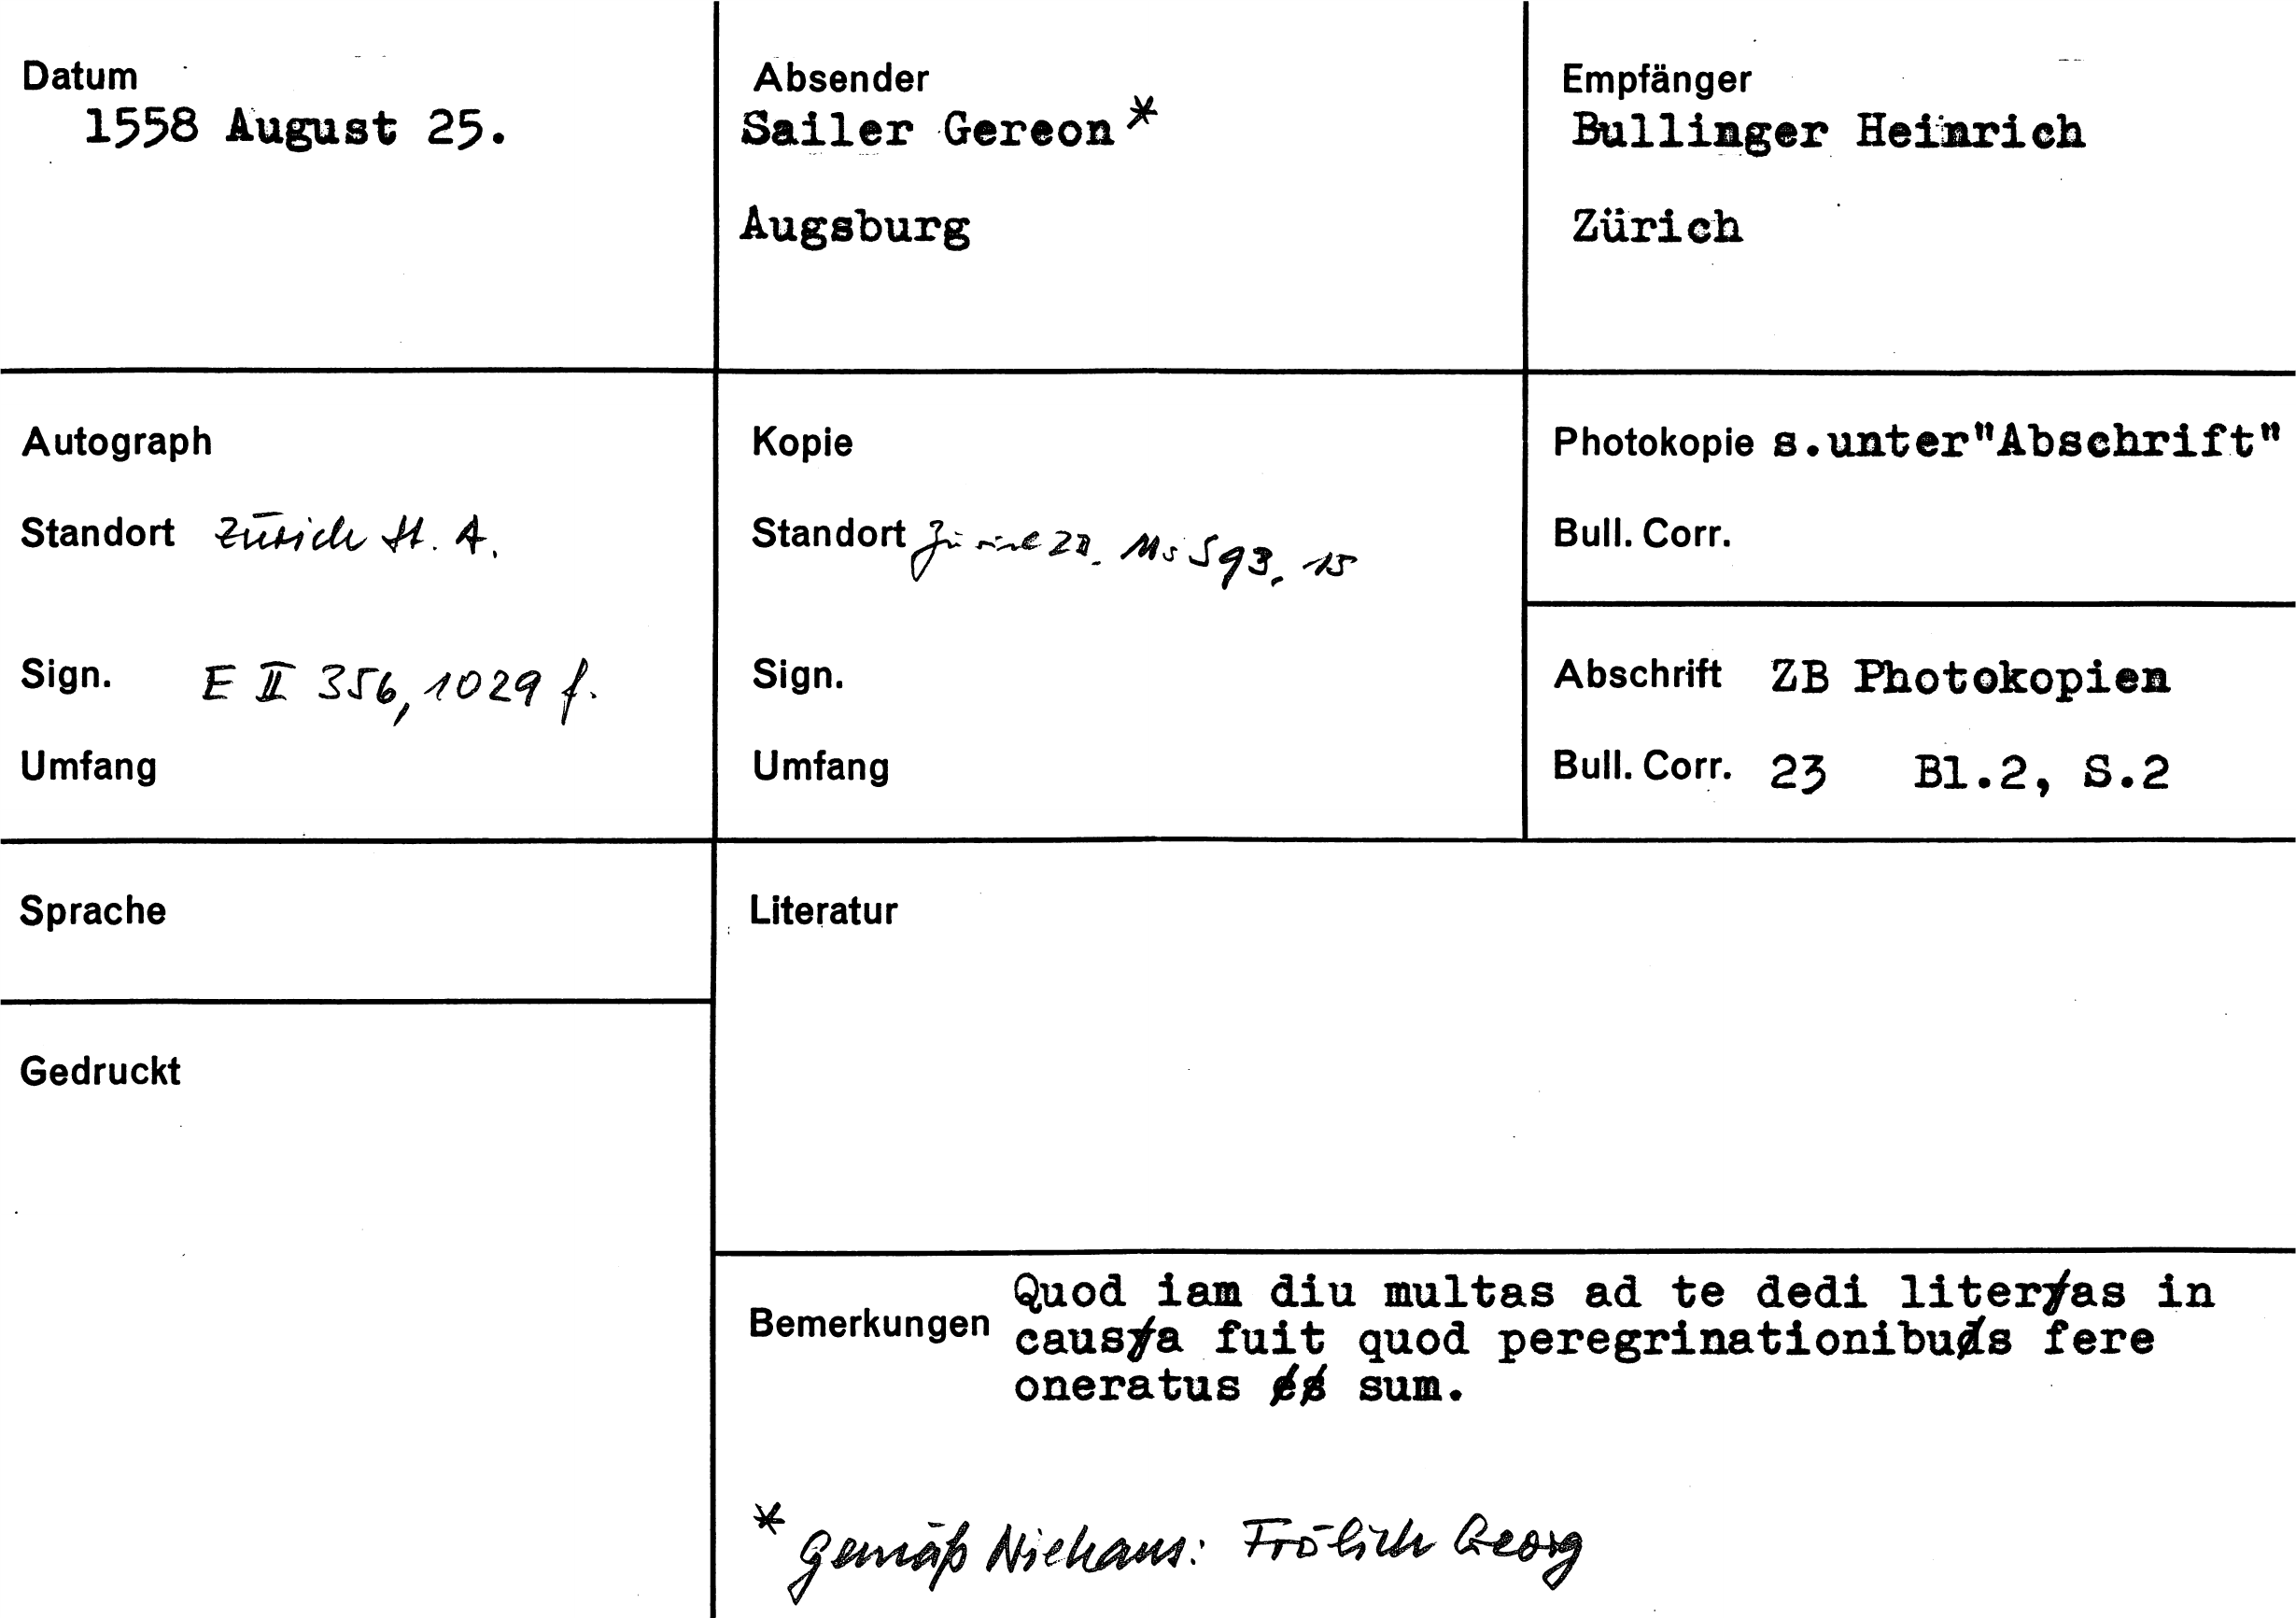 Datum
1558 August 25.
Absender
Sailer Gereon*
Augsburg
Empfänger
Bullinger Heinrich
Zürich
Autograph
Standort Zürich St. A.
Sign. E II 356, 1029 f.
Umfang
Kopie
Standort Zürich ZB. Ms S 93, 15
Sign.
Umfang
Photokopie s.unter"Abschrift"
Bull. Corr.
Abschrift ZB Photokopien
Bull. Corr. 23 Bl.2, S.2
Sprache
Gedruckt
Literatur
Bemerkungen
Quod iam diu multas ad te dedi literas in
causa fuit quod peregrinationibus fere
oneratus sum.
* gemäß Niehaus: Frölich Georg